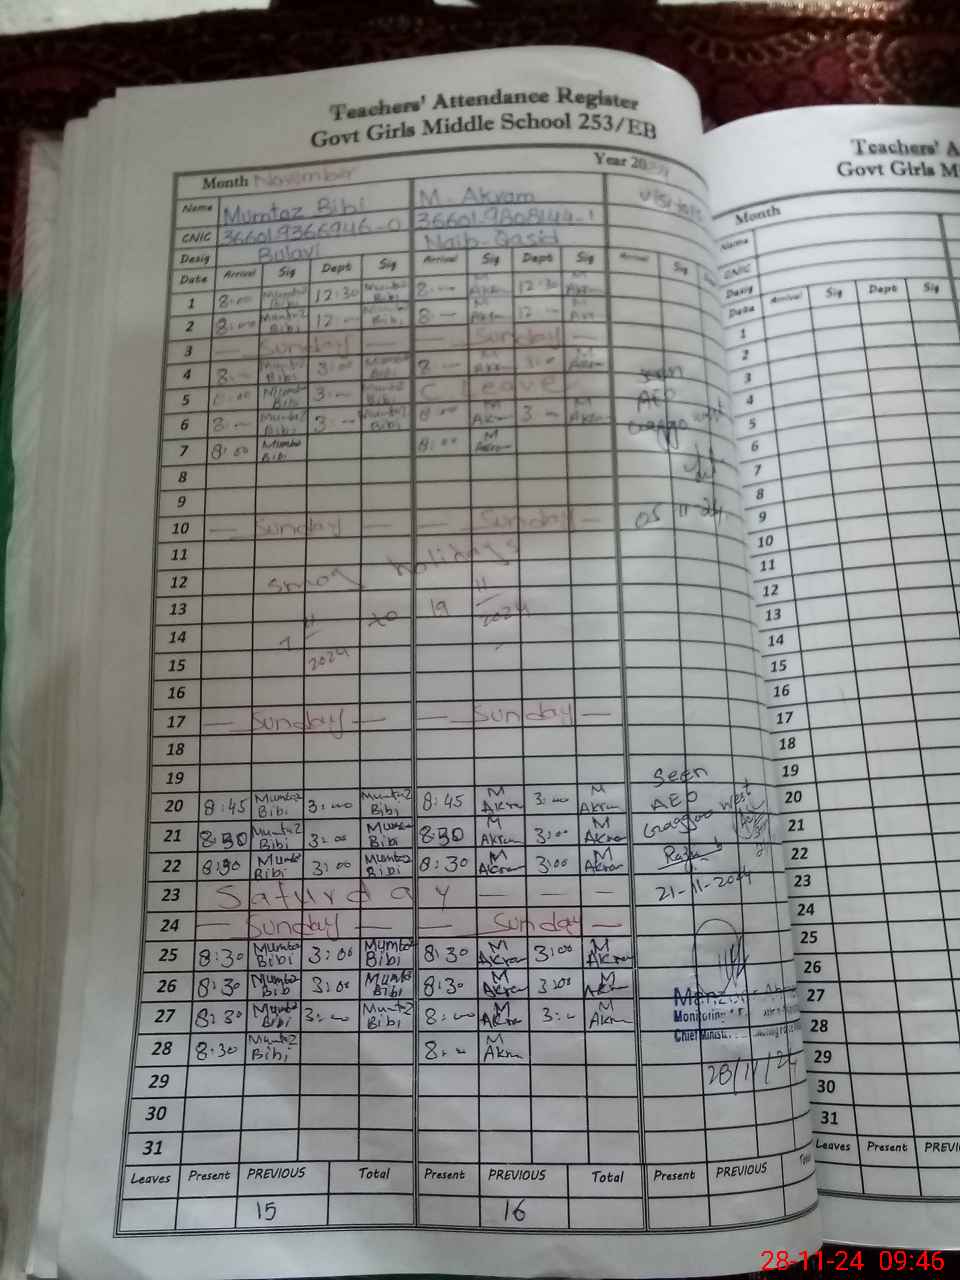 Teachers' Attendance Register
Govt Girls Middle School 253/EB
Month November Year 2024
Name Mumtaz Bibi M. Akram visitors
CNIC 366019366946-0 3660198081444-1
Desig Bulavi Naib-Qasid
Date Arrival Sig Dept Sig Arrival Sig Dept Sig Arrival Sig
1 8:00 Mumtaz Bibi 12:30 Mumtaz Bibi 8:-- M Akram 12:30 M Akram
2 8:00 Mumtaz Bibi 12:-- Mumtaz Bibi 8:-- M Akram 12:-- M
3 — Sunday — — Sunday —
4 8:-- Mumtaz Bibi 3:00 Mumtaz Bibi 8:-- M Akram 3:00 M Akram seen
5 8:00 Mumtaz Bibi 3:-- Mumtaz Bibi C. Leave AEO
6 8:-- Mumtaz Bibi 3:-- Mumtaz Bibi 8:00 M Akram 3:-- M Akram west
7 8:00 Mumtaz Bibi 8:00 M Akram
8
9
10 — Sunday — — Sunday — 05 11-24
11
12 Smog holidays
13 7/11/2024 to 19/11/2024
14
15
16
17 — Sunday — — Sunday —
18
19 Seen
20 8:45 Mumtaz Bibi 3:00 Mumtaz Bibi 8:45 M Akram 3:00 M Akram AEO west
21 8:30 Mumtaz Bibi 3:00 Mumtaz Bibi 8:30 M Akram 3:00 M Akram
22 8:30 Mumtaz Bibi 3:00 Mumtaz Bibi 8:30 M Akram 3:00 M Akram
23 Saturday — — — 21-11-2024
24 — Sunday — — Sunday —
25 8:30 Mumtaz Bibi 3:00 Mumtaz Bibi 8:30 M Akram 3:00 M Akram
26 8:30 Mumtaz Bib 3:00 Mumtaz Bibi 8:30 M Akram 3:00 M Akram
27 8:30 Mumtaz Bibi 3:-- Mumtaz Bibi 8:-- M Akram 3:-- M Akram Monitoring
28 8:30 Mumtaz Bibi 8:-- M Akram Chief
29 28/11/24
30
31
Leaves Present PREVIOUS Total Present PREVIOUS Total Present PREVIOUS
15 16
Teachers' A
Govt Girls M
Month
Name
CNIC
Desig
Date Arrival Sig Dept Sig
1
2
3
4
5
6
7
8
9
10
11
12
13
14
15
16
17
18
19
20
21
22
23
24
25
26
27
28
29
30
31
Leaves Present PREVI
28-11-24 09:46